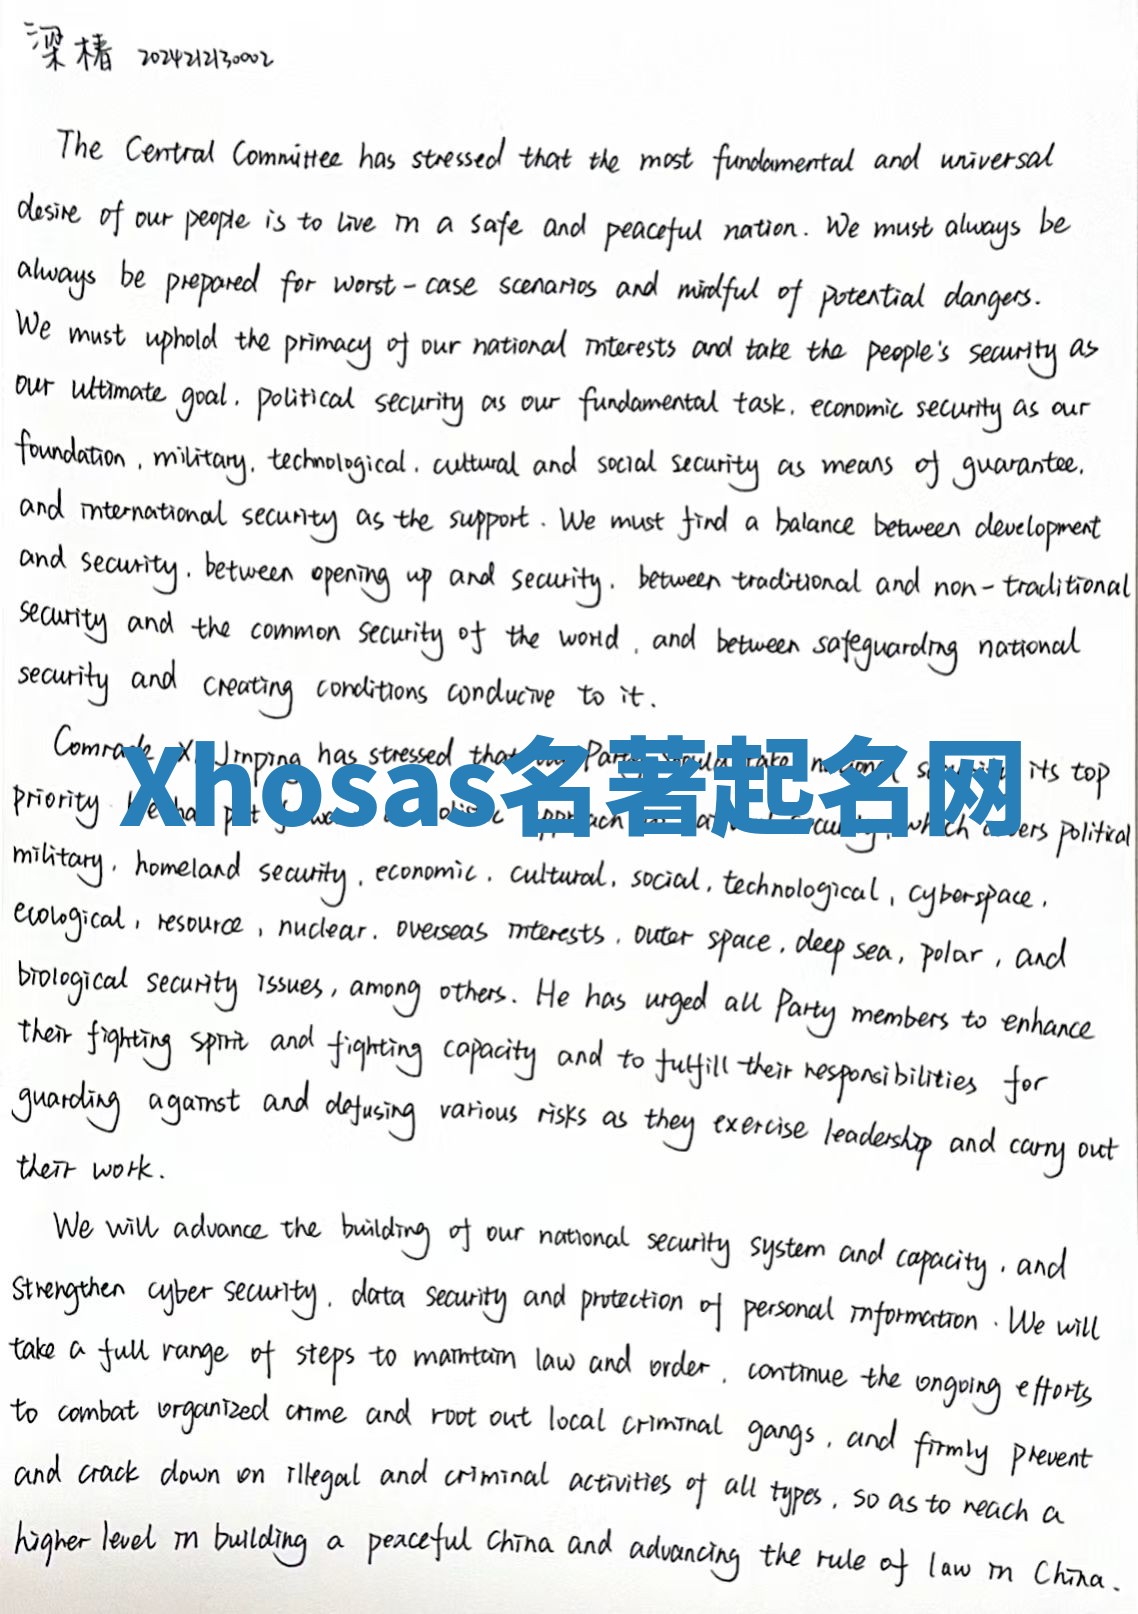 梁椿 2024212130002
The Central Committee has stressed that the most fundamental and universal
desire of our people is to live in a safe and peaceful nation. We must always be
always be prepared for worst-case scenarios and mindful of potential dangers.
We must uphold the primacy of our national interests and take the people's security as
our ultimate goal, political security as our fundamental task, economic security as our
foundation, military, technological, cultural and social security as means of guarantee,
and international security as the support. We must find a balance between development
and security, between opening up and security, between traditional and non-traditional
security and the common security of the world, and between safeguarding national
security and creating conditions conducive to it.
Comrade Xi Jinping has stressed that Party take its top
Xhosas名著起名网
priority put approach security, which covers political
military, homeland security, economic, cultural, social, technological, cyberspace,
ecological, resource, nuclear, overseas interests, outer space, deep sea, polar, and
biological security issues, among others. He has urged all Party members to enhance
their fighting spirit and fighting capacity and to fulfill their responsibilities for
guarding against and defusing various risks as they exercise leadership and carry out
their work.
We will advance the building of our national security system and capacity, and
strengthen cyber security, data security and protection of personal information. We will
take a full range of steps to maintain law and order, continue the ongoing efforts
to combat organized crime and root out local criminal gangs, and firmly prevent
and crack down on illegal and criminal activities of all types, so as to reach a
higher level in building a peaceful China and advancing the rule of law in China.